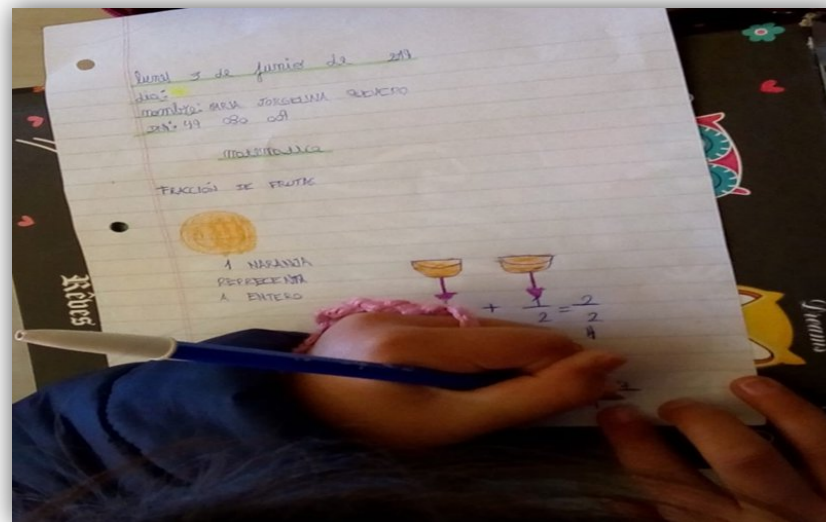 lunes 3 de junio de 2019
dia:
nombre: JORGELINA
DNI: 49 080 009
MATEMATICA
FRACCIÓN DE FRUTAS
1 NARANJA
REPRECENTA
1 ENTERO
+ 1/2 = 2/2
Rêves
Dreams